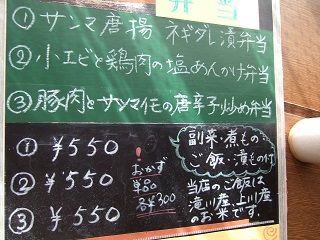 弁当
①サンマ唐揚 ネギダレ漬弁当
②小エビと鶏肉の塩あんかけ弁当
③豚肉とサツマイモの唐辛子炒め弁当
①¥550
②¥550
③¥550
!
おかず
単品
各¥300
副菜・煮もの・
ご飯・漬もの付
当店のご飯は
滝川産、上川産
のお米です。